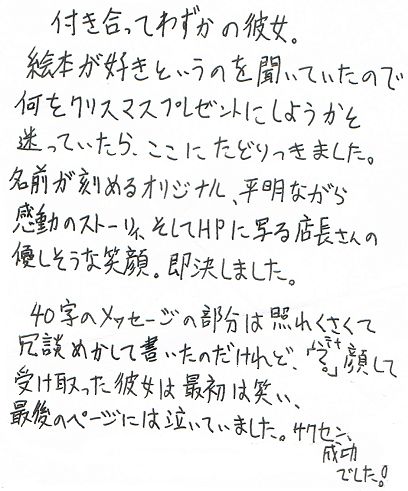 付き合ってわずかの彼女。
絵本が好きというのを聞いていたので
何をクリスマスプレゼントにしようかと
迷っていたら、ここにたどりつきました。
名前が刻めるオリジナル、平明ながら
感動のストーリィ、そしてHPに写る店長さんの
優しそうな笑顔。即決しました。
40字のメッセージの部分は照れくさくて
冗談めかして書いたのだけれど、「?」顔して
受け取った彼女は最初は笑い、
最後のページには泣いていました。サクセン、
成功
でした!